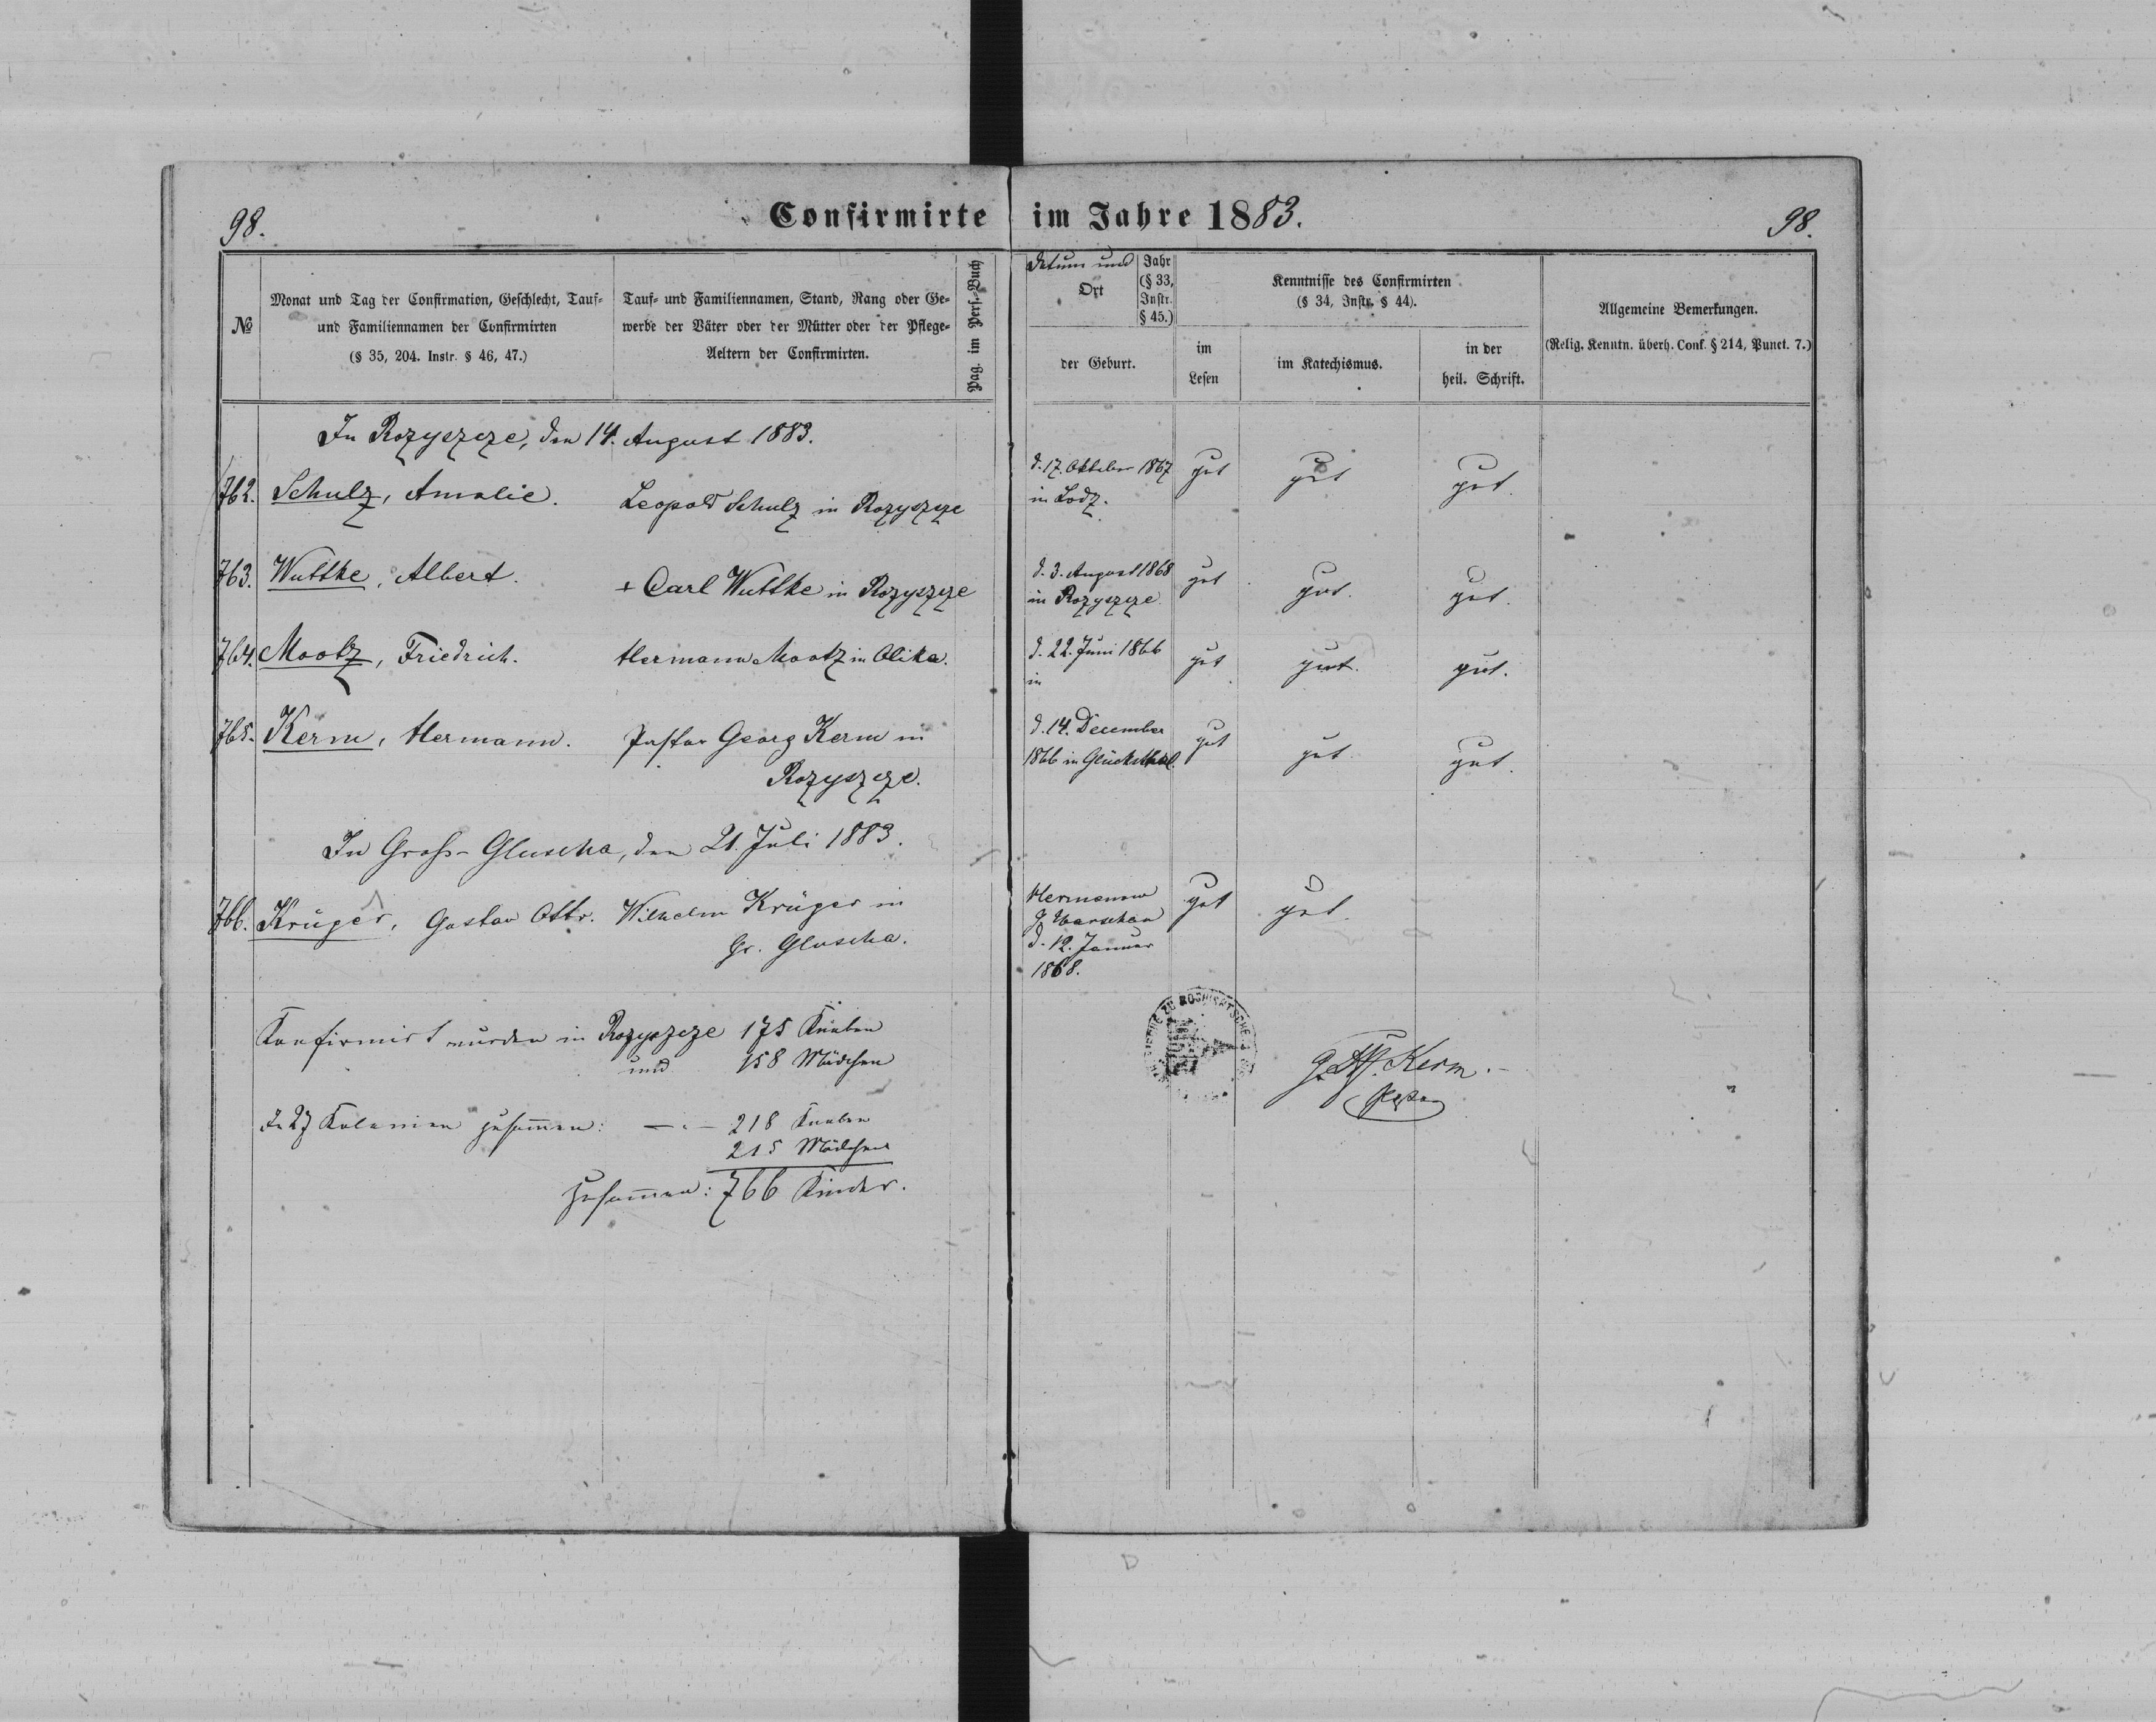 98.
Confirmirte im Jahre 1883.
98.
№
Monat und Tag der Confirmation, Geschlecht, Tauf-
und Familiennamen der Confirmirten
(§ 35, 204. Instr. § 46, 47.)
Tauf- und Familiennamen, Stand, Rang oder Ge-
werbe der Väter oder der Mütter oder der Pflege-
Aeltern der Confirmirten.
Pag. im Pers.-Buch
Datum und
Ort
Jahr
(§ 33,
Instr.
§ 45.)
der Geburt.
Kenntnisse des Confirmirten
(§ 34, Instr. § 44).
im
Lesen
im Katechismus.
in der
heil. Schrift.
Allgemeine Bemerkungen.
(Relig. Kenntn. überh. Conf. § 214, Punct. 7.)
In Rozyszcze, den 14. August 1883.
762. Schulz, Amalie. Leopold Schulz in Rozyszcze d. 17. Oktober 1867 gut gut gut.
in Lodz.
763. Wuttke, Albert. + Carl Wuttke in Rozyszcze d. 3. August 1868 gut gut. gut.
in Rozyszcze
764. Mootz, Friedrich. Hermann Mootz in Olika. d. 22. Juni 1866 gut gut. gut.
in
765. Kerm, Hermann. Pastor Georg Kerm in d. 14. December gut gut gut.
Rozyszcze. 1866 in Glücksthal.
In Groß-Gluscha, den 21. Juli 1883.
766. Krüger, Gustav Otto. Wilhelm Krüger in gut gut.
Gr. Gluscha.
d. 12. Januar
1868.
Konfirmirt wurden in Rozyszcze 175 Knaben
und 158 Mädchen
In 27 Kolonien zusammen: — " — 218 Knaben
215 Mädchen
Zusammen: 766 Kinder.
ZU ROSCHISCHTSCHE
Kerm.
Pastor